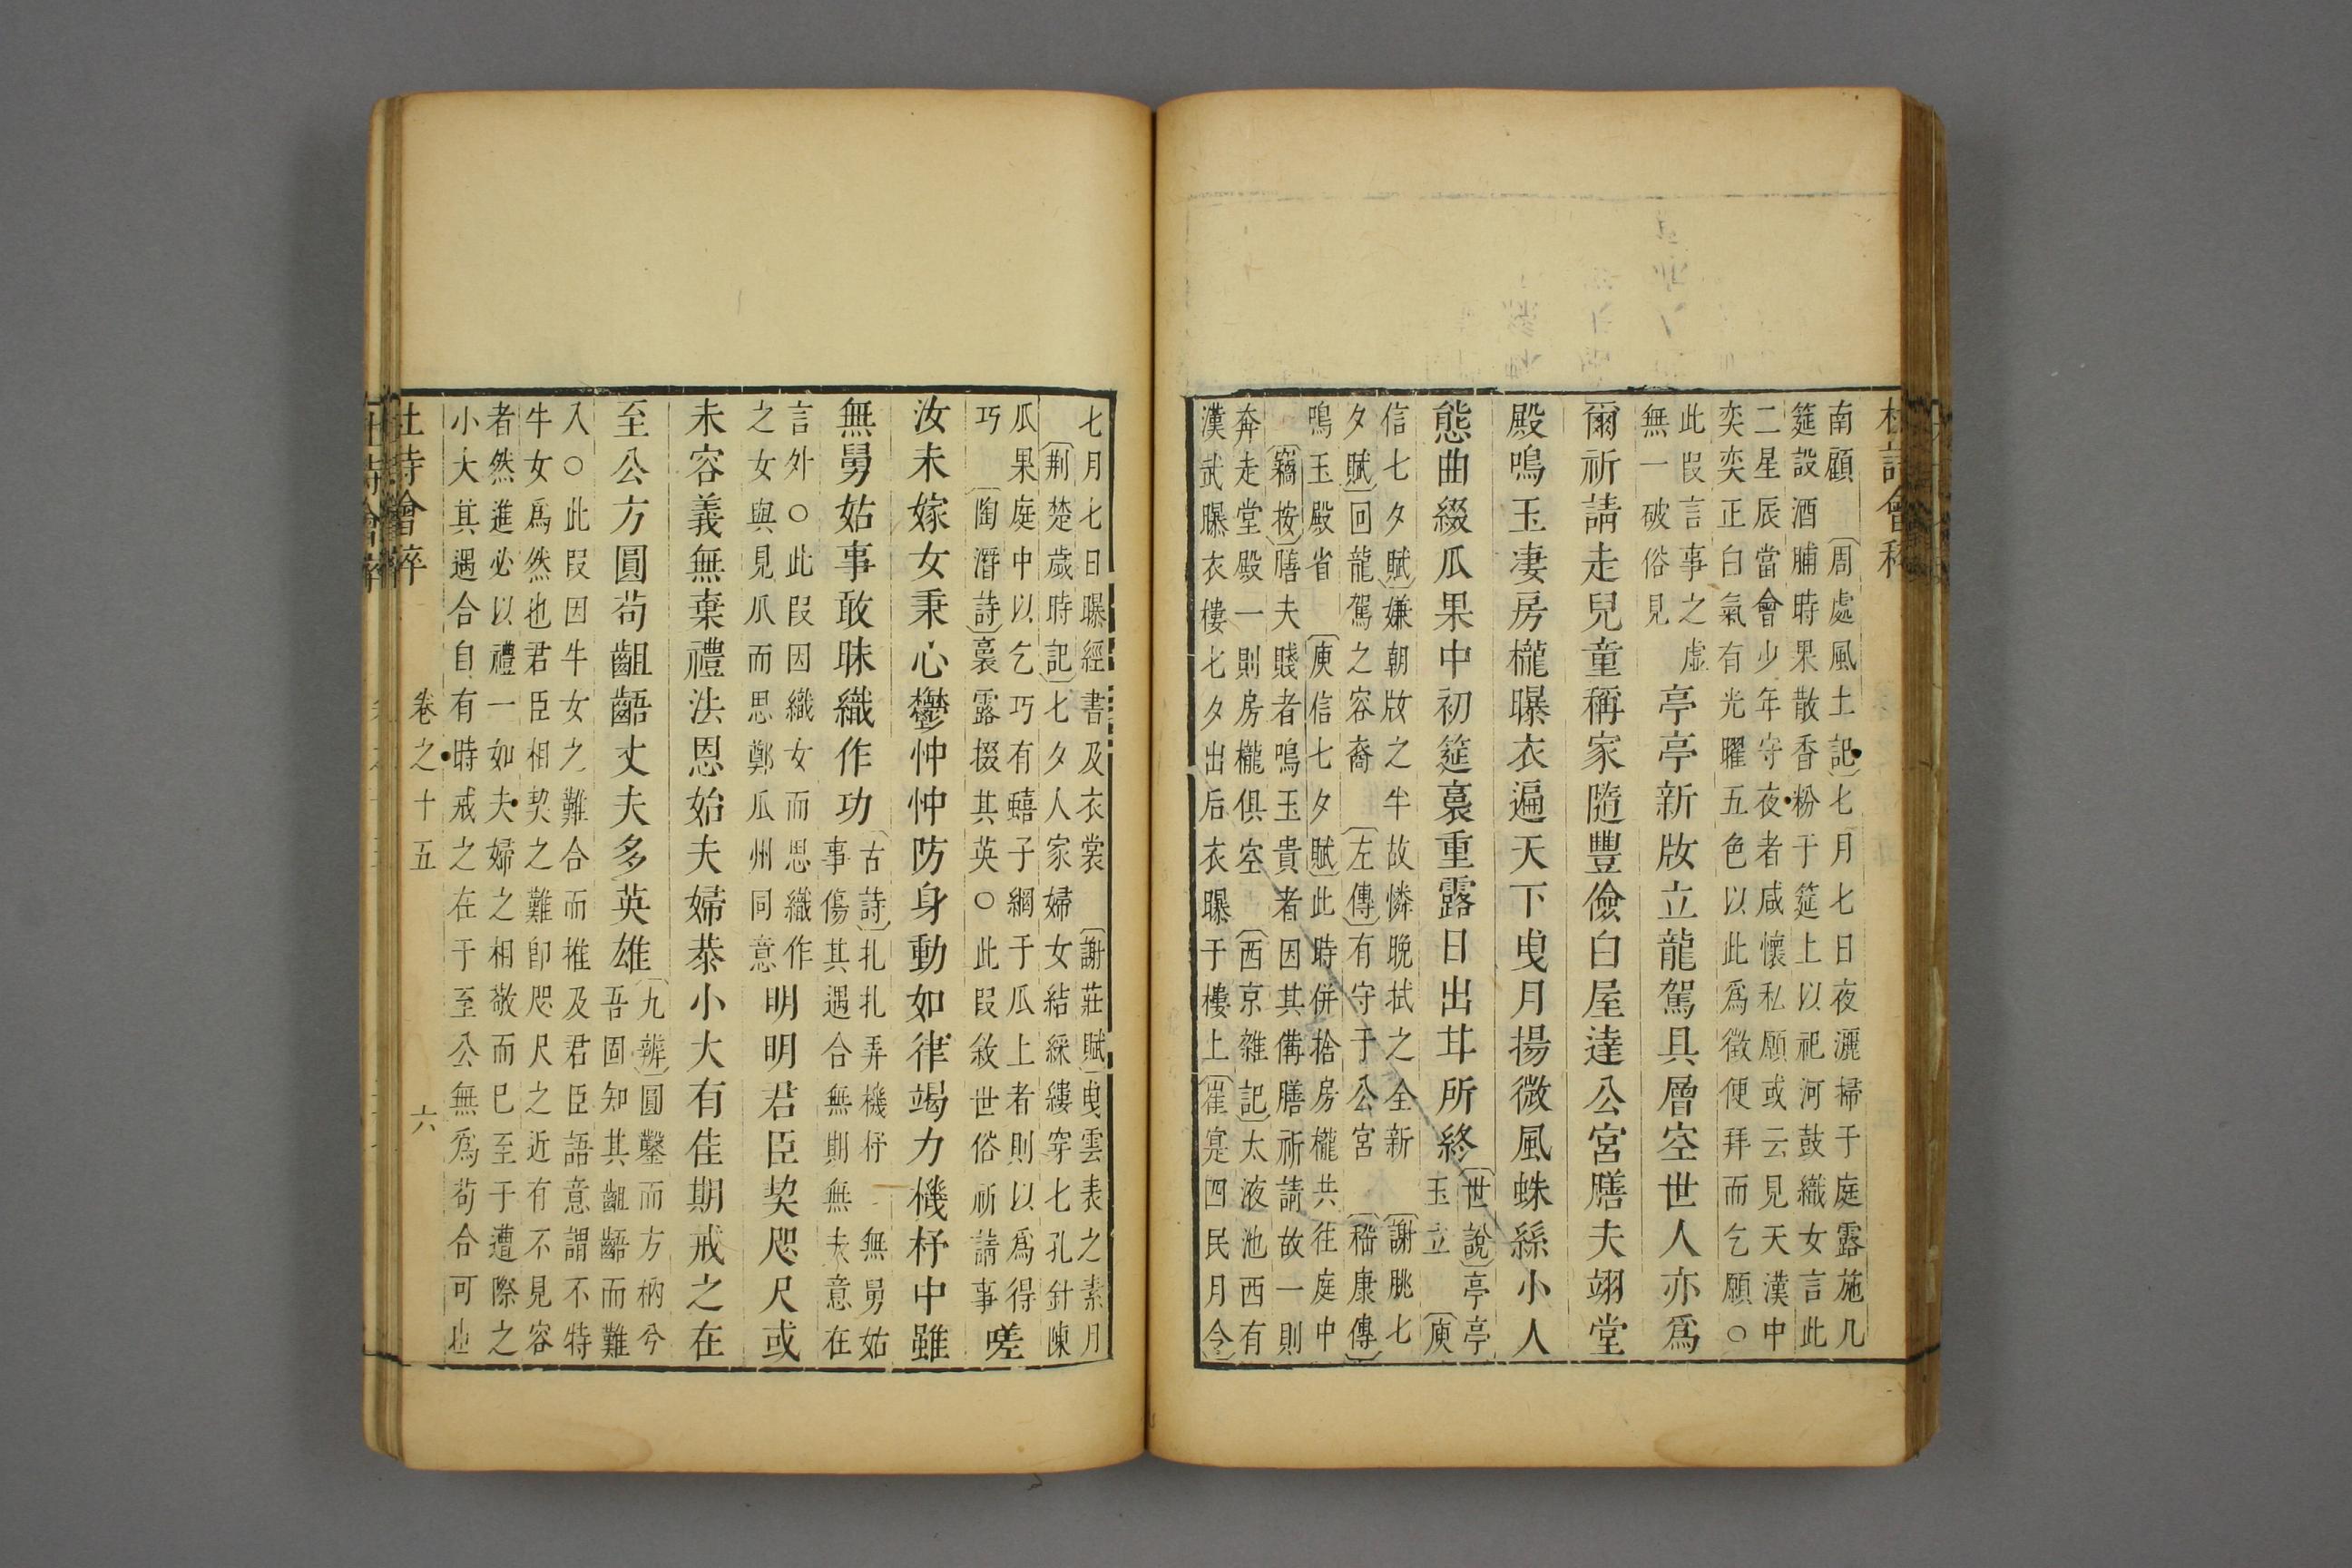 杜詩會稡
南顧〔周處風土記〕七月七日夜灑掃于庭露施几
筵設酒脯時果散香粉于筵上以祀河鼓織女言此
二星辰當會少年守夜者咸懷私願或云見天漢中
奕奕正白氣有光曜五色以此爲徵便拜而乞願○
此段言事之虛
無一破俗見
亭亭新妝立龍駕具層空世人亦爲
爾祈請走兒童稱家隨豐儉白屋達公宮膳夫翊堂
殿鳴玉凄房櫳曝衣遍天下曳月揚微風蛛絲小人
態曲綴瓜果中初筵裛重露日出甘所終
〔世說〕亭亭
玉立〔庾
信七夕賦〕嫌朝妝之半故憐晚拭之全新〔謝朓七
夕賦〕回龍駕之容裔〔左傳〕有守于公宮〔嵇康傳〕
鳴玉殿省〔庾信七夕賦〕此時併捨房櫳共往庭中
〔竊按〕膳夫賤者鳴玉貴者因其備膳祈請故一則
奔走堂殿一則房櫳俱空〔西京雜記〕太液池西有
漢武曝衣樓七夕出后衣曝于樓上〔崔寔四民月令〕
七月七日曝經書及衣裳〔謝莊賦〕曳雲表之素月
〔荆楚歲時記〕七夕人家婦女結綵縷穿七孔針陳
瓜果庭中以乞巧有蟢子網于瓜上者則以爲得
巧〔陶潛詩〕裛露掇其英○此段敘世俗祈請事
嗟
汝未嫁女秉心鬱忡忡防身動如律竭力機杼中雖
無舅姑事敢昧織作功
〔古詩〕扎扎弄機杼 無舅姑
事傷其遇合無期無夫意在
言外○此段因織女而思織作
之女與見瓜而思鄭瓜州同意
明明君臣契咫尺或
未容義無棄禮法恩始夫婦恭小大有佳期戒之在
至公方圓苟齟齬丈夫多英雄
〔九辨〕圓鑿而方枘兮
吾固知其齟齬而難
入○此段因牛女之難合而推及君臣語意謂不特
牛女爲然也君臣相契之難卽咫尺之近有不見容
者然進必以禮一如夫婦之相敬而已至于遭際之
小大其遇合自有時戒之在于至公無爲苟合可也
杜詩會稡 卷之十五 六